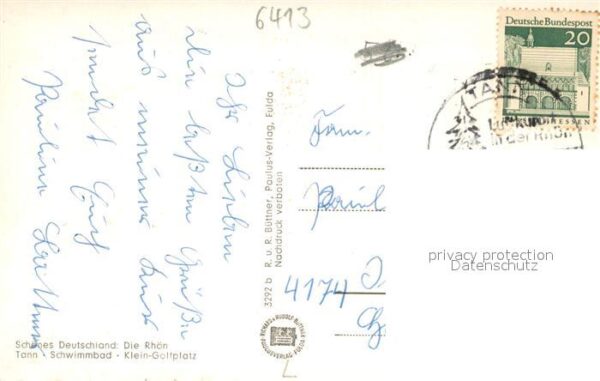 6413
Deutsche Bundespost
20
HESSEN
TANN
Luftkurort
in der Rhön
Ihr Lieben
die besten Grüße
aus meiner Kur
sendet Euch
Pauline
Fam.
Paul
4174
R. u R. Büttner, Paulus-Verlag, Fulda
Nachdruck verboten
3292 b
privacy protection
Datenschutz
Schönes Deutschland: Die Rhön
Tann - Schwimmbad - Klein-Golfplatz